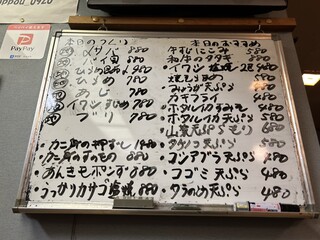 PayPay
本日のつくり
〆サバ 880
バイ貝 580
ひらめ昆布〆 980
ひらめ 780
あじ 780
イワシすずめ 780
ブリ 780
・カニ肩の押すし 1480
・カニ肩のすのもの 880
・あんきモポンず 880
・うっかりカサゴ塩焼 880
本日のおすすめ
牛すじにこみ 580
和牛のタタキ 880
イワシ塩焼 2尾 480
みょうが天ぷら 480
カキフライ 480
ホタルイカすみそ 480
ホタルイカ天ぷら 580
山菜天ぷらもり 680
タケノコ天ぷら 580
コシアブラ天ぷら 680
コゴミ天ぷら 480
タラのめ天ぷら 480